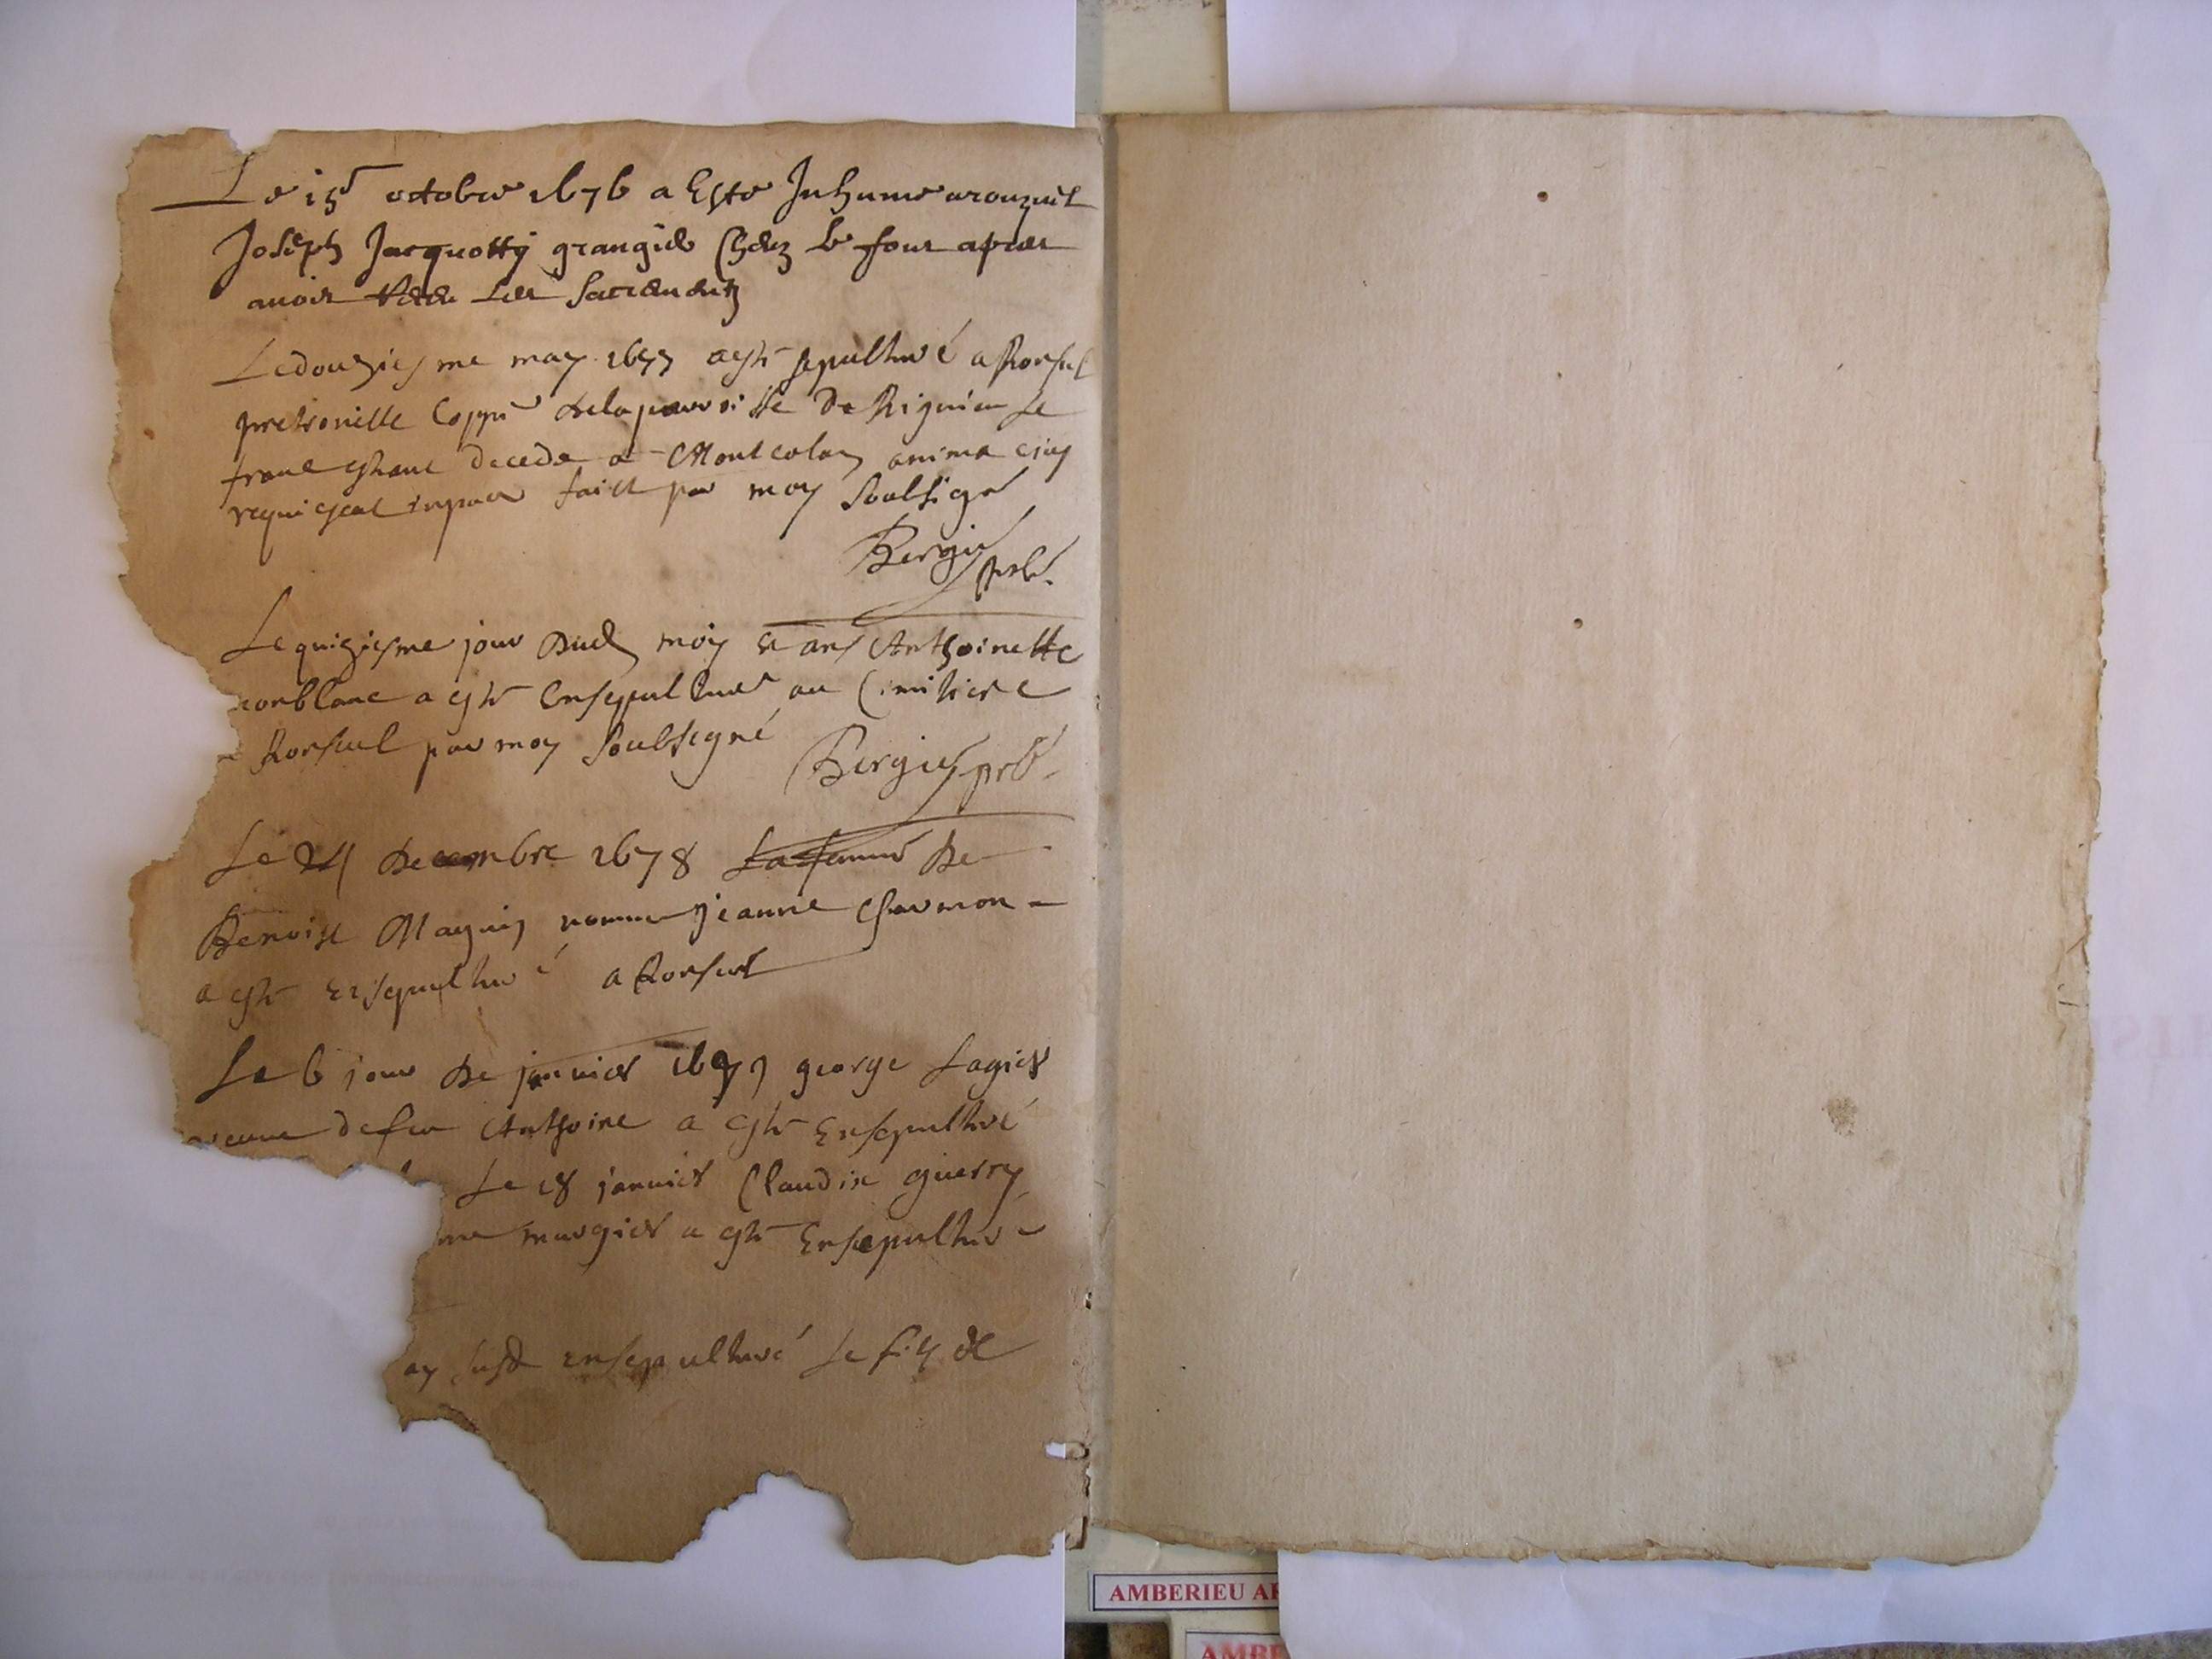 Le 15e octobre 1676 a Esté Inhumé a ronzuel
Joseph Jacquotty grangié Chez le four apres
avoir les Sacrements
Le douziesme may 1677 a esté sepulturé a Ronsuel
pretronille de la parroisse de Rignieu Le
franc estant decede a Montcolon anima eius
requiescat in pace faict par moy Soubsigné
Bergier pbr.
Le quiziesme jour Dud moys et an Anthoinette
conblanc a esté Ensepulturé au Cimitiere
Ronsuel par moy Soubsigné Bergier pbr.
Le 24 Decembre 1678 La femme De
Benoist Magnin nomme Jeanne Charmon
a esté Ensepulturé a Ronsuel
Le 6 jour De janvier 1679 george Lagier
veuve de feu Anthoine a esté Ensepulturé
Le 18 janvier Claudine guerry
me murgier a esté Ensepulturé
ay susd ensepulturé Le fils de
AMBERIEU
AMBE